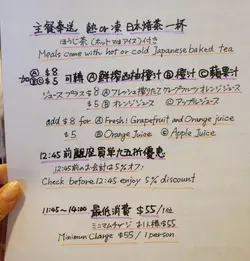 主餐奉送 熱or凍 日本焙茶一杯
ほうじ茶(ホットorアイス)付き
Meals come with hot or cold Japanese baked tea
加 Ⓐ $8 可轉 Ⓐ鮮榨西柚橙汁 Ⓑ橙汁 Ⓒ蘋果汁
ⒷⒸ $5
ジュースプラス $8 Ⓐフレッシュ搾りたてグレープフルーツオレンジジュース
$5 Ⓑオレンジジュース Ⓒアップルジュース
add $8 for Ⓐ Fresh! Grapefruit and Orange juice
$5 Ⓑ Orange Juice Ⓒ Apple Juice
12:45前離座買單九五折優惠
12:45前のお会計は5%オフ。
Check before 12:45 enjoy 5% discount
11:45~14:00 最低消費 $55/1位
ミニマムチャージ お1人様$55
Minimum Charge $55 / 1 person